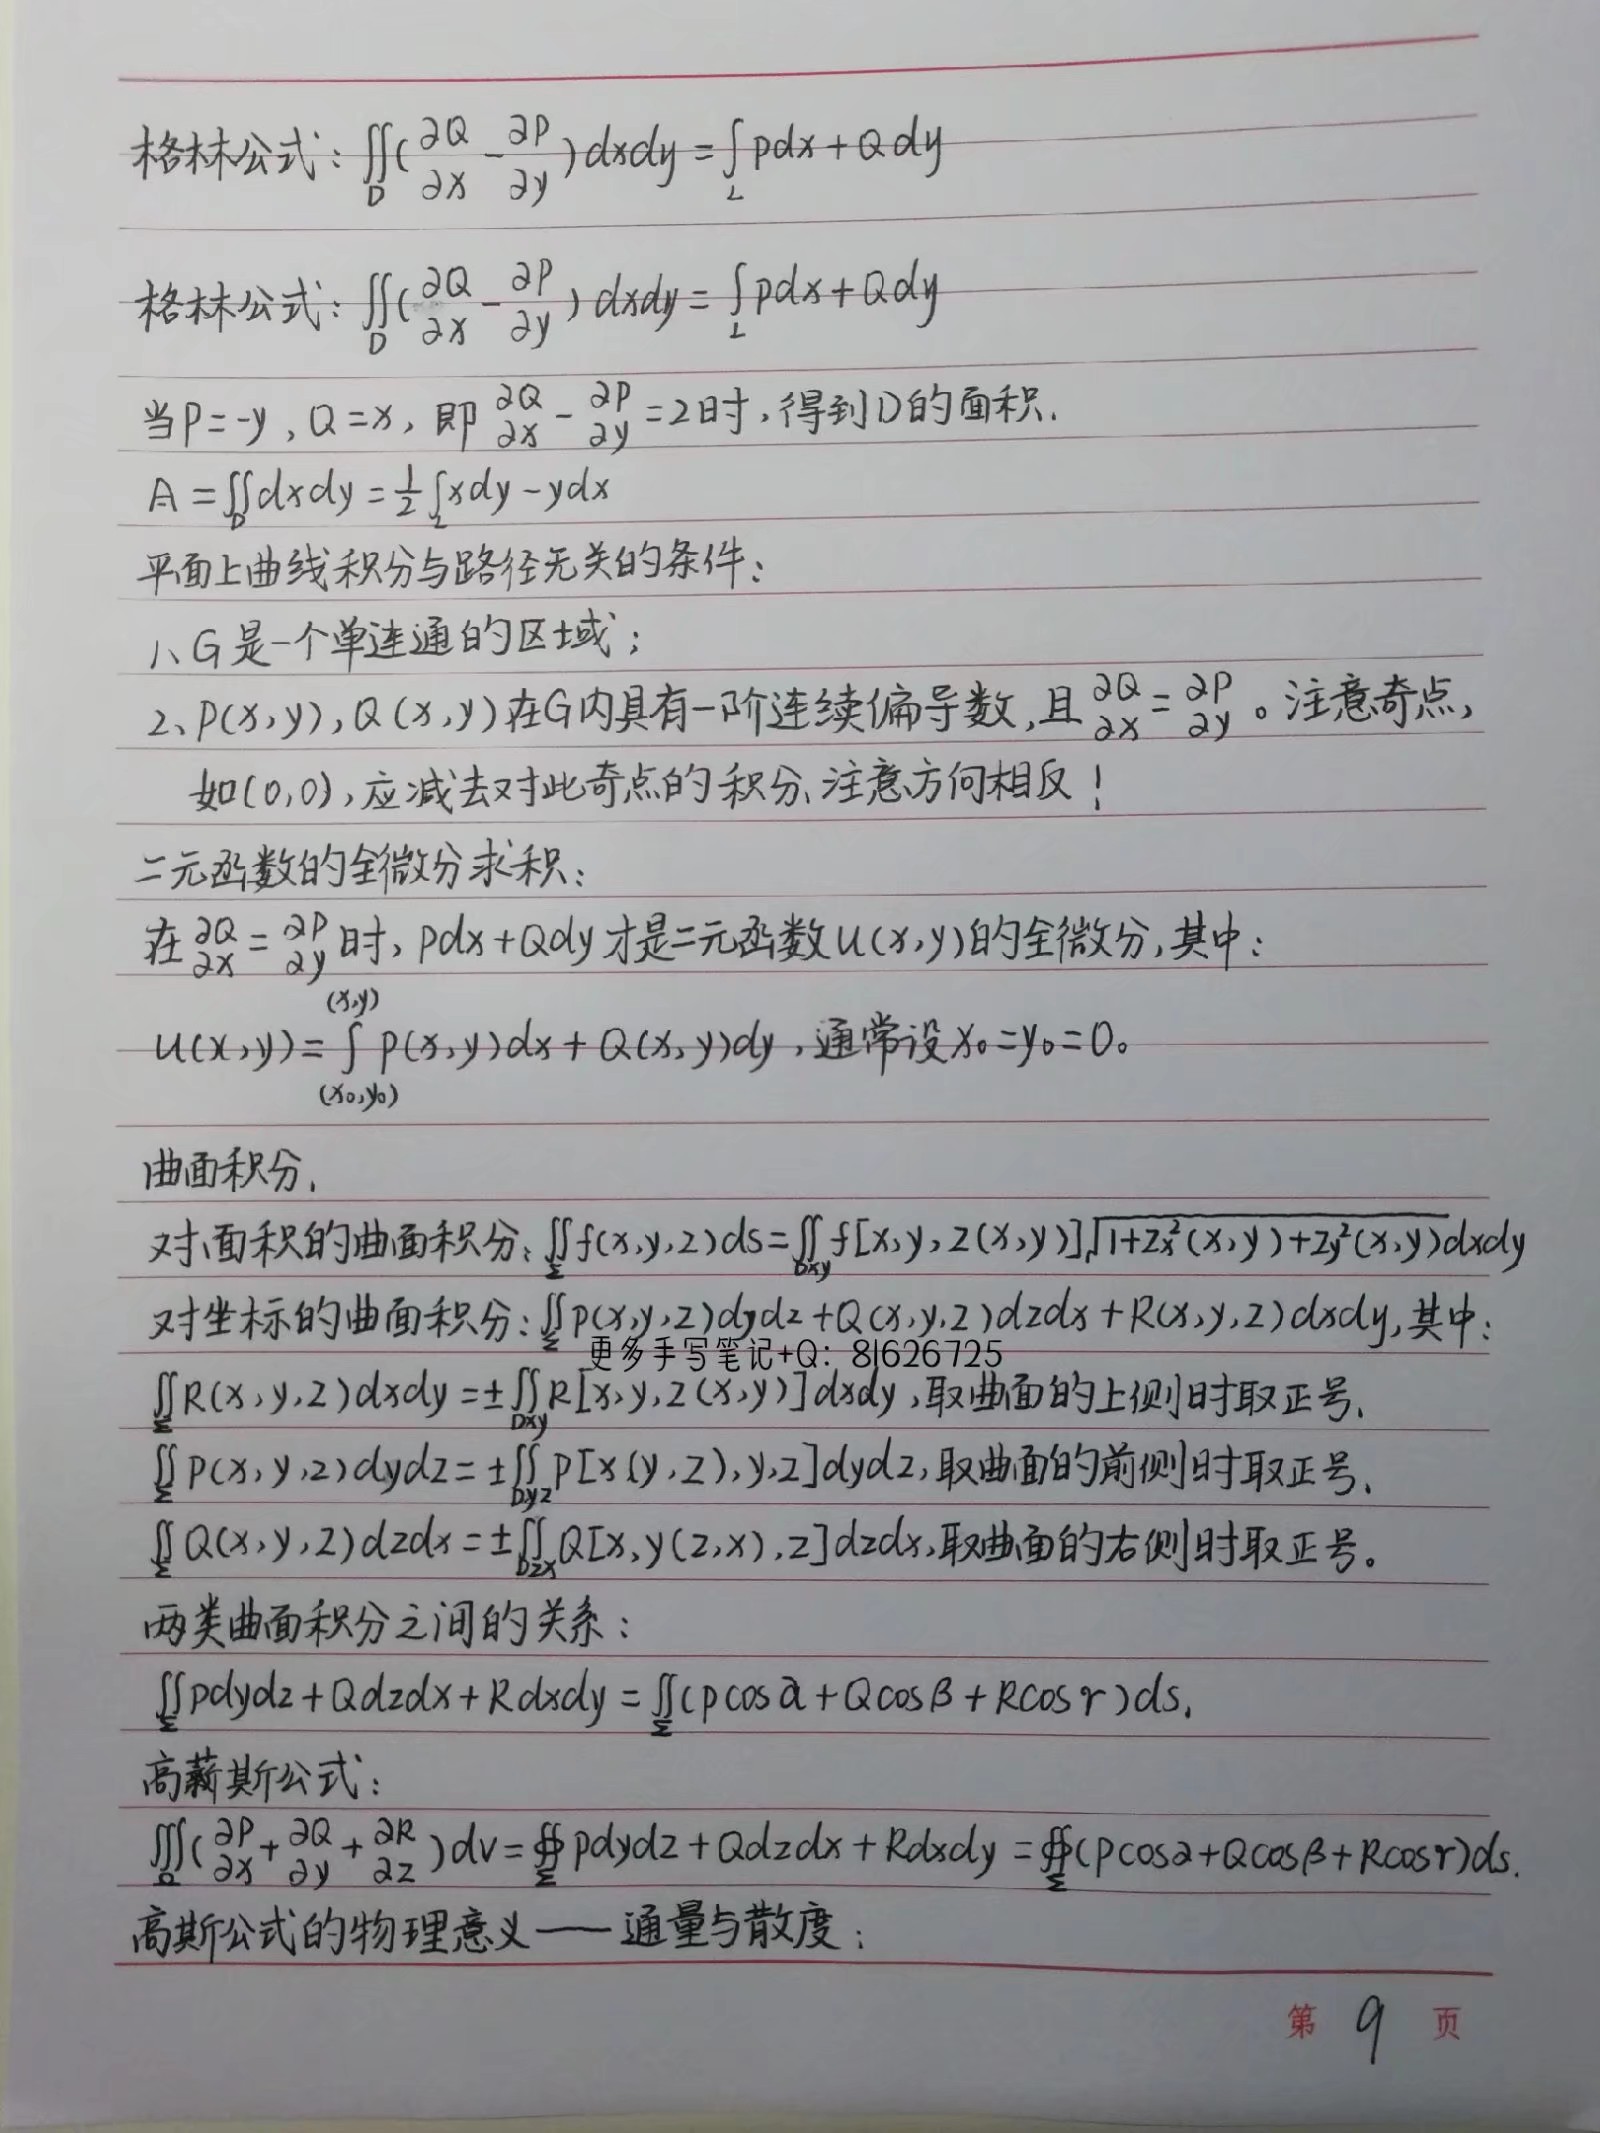 格林公式：∬_D(∂Q/∂x-∂P/∂y)dxdy=∫_L Pdx+Qdy
格林公式：∬_D(∂Q/∂x-∂P/∂y)dxdy=∫_L Pdx+Qdy
当P=-y,Q=x,即∂Q/∂x-∂P/∂y=2时,得到D的面积.
A=∬_D dxdy=1/2∫_L xdy-ydx
平面上曲线积分与路径无关的条件：
1、G是一个单连通的区域；
2、P(x,y),Q(x,y)在G内具有一阶连续偏导数,且∂Q/∂x=∂P/∂y。注意奇点,
如(0,0),应减去对此奇点的积分、注意方向相反！
二元函数的全微分求积：
在∂Q/∂x=∂P/∂y时,Pdx+Qdy才是二元函数u(x,y)的全微分,其中：
u(x,y)=∫_(x₀,y₀)^(x,y) P(x,y)dx+Q(x,y)dy,通常设x₀=y₀=0。
曲面积分.
对面积的曲面积分：∬_Σ f(x,y,z)ds=∬_Dxy f[x,y,z(x,y)]√(1+z_x²(x,y)+z_y²(x,y))dxdy
对坐标的曲面积分：∬_Σ P(x,y,z)dydz+Q(x,y,z)dzdx+R(x,y,z)dxdy,其中：
更多手写笔记+Q：81626725
∬_Σ R(x,y,z)dxdy=±∬_Dxy R[x,y,z(x,y)]dxdy,取曲面的上侧时取正号.
∬_Σ P(x,y,z)dydz=±∬_Dyz P[x(y,z),y,z]dydz,取曲面的前侧时取正号.
∬_Σ Q(x,y,z)dzdx=±∬_Dzx Q[x,y(z,x),z]dzdx,取曲面的右侧时取正号。
两类曲面积分之间的关系：
∬_Σ Pdydz+Qdzdx+Rdxdy=∬_Σ(Pcosα+Qcosβ+Rcosγ)ds.
高斯公式：
∭_Ω(∂P/∂x+∂Q/∂y+∂R/∂z)dv=∯_Σ Pdydz+Qdzdx+Rdxdy=∯_Σ(Pcosα+Qcosβ+Rcosγ)ds.
高斯公式的物理意义——通量与散度：
第 9 页